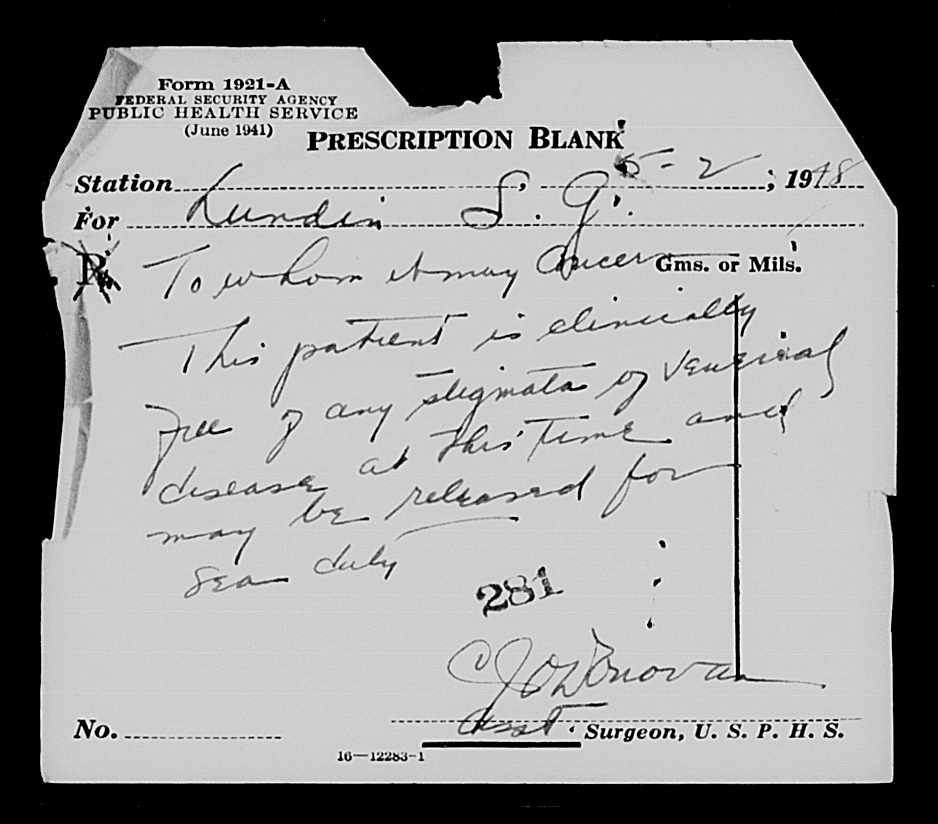 Form 1921-A
FEDERAL SECURITY AGENCY
PUBLIC HEALTH SERVICE
(June 1941)
PRESCRIPTION BLANK
Station , 5-2 ; 1948
For Lundin S. G.
℞ To whom it may
Gms. or Mils.
This patient is clinically
free of any stigmata of venereal
disease at this time and
may be released for
sea duty
281
C J O'Donovan
Asst. Surgeon, U. S. P. H. S.
No.
16—12283-1